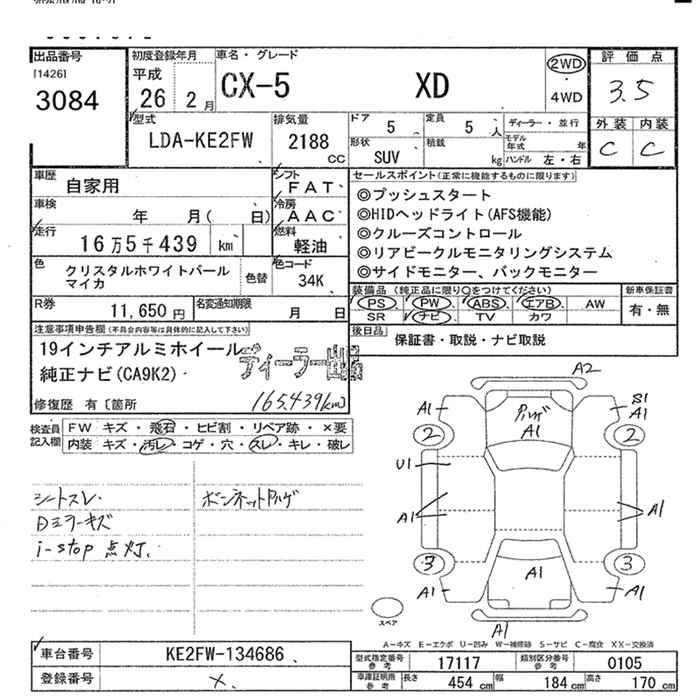 出品番号
[1426]
3084
初度登録年月
平成
26 2月
車名・グレード
CX-5 XD
2WD
・
4WD
評価点
3.5
外装 内装
C C
型式
LDA-KE2FW
排気量
2188
CC
ドア 5
定員 5 人
形状 SUV
積載 kg
ディーラー・並行
モデル年式 年
ハンドル 左・右
車歴 自家用
シフト FAT
車検 年 月( 日)
冷房 AAC
走行 16万5千439 km
燃料 軽油
色 クリスタルホワイトパール
マイカ
色替
色コード 34K
R券 11,650円
名変通知期限 月 日
セールスポイント(正常に機能するものに限ります)
◎プッシュスタート
◎HIDヘッドライト(AFS機能)
◎クルーズコントロール
◎リアビークルモニタリングシステム
◎サイドモニター、バックモニター
装備品(純正品に限り○をつけてください)
PS PW ABS エアB AW
SR ナビ TV カワ
新車保証書
有・無
後日品 保証書・取説・ナビ取説
注意事項申告欄(不具合内容等は具体的に記入して下さい)
19インチアルミホイール
純正ナビ(CA9K2)
ディーラー出品
修復歴 有〔箇所
165,439km)
検査員記入欄
FW キズ・飛石・ヒビ割・リペア跡・×要
内装 キズ・汚レ・コゲ・穴・スレ・キレ・破レ
シートスレ.
Dミラーキズ
i-stop 点灯.
A2
A1
S1
A1
2
2
A1
U1
A1
A1
3
3
A1
A1
A1
A1
スペア
A-キズ E-エクボ U-凹み W-補修跡 S-サビ C-腐食 XX-交換済
車台番号 KE2FW-134686
登録番号 ×
型式指定番号 参考 17117
類別区分番号 参考 0105
車庫証明用 参考
長さ 454 cm
幅 184 cm
高さ 170 cm